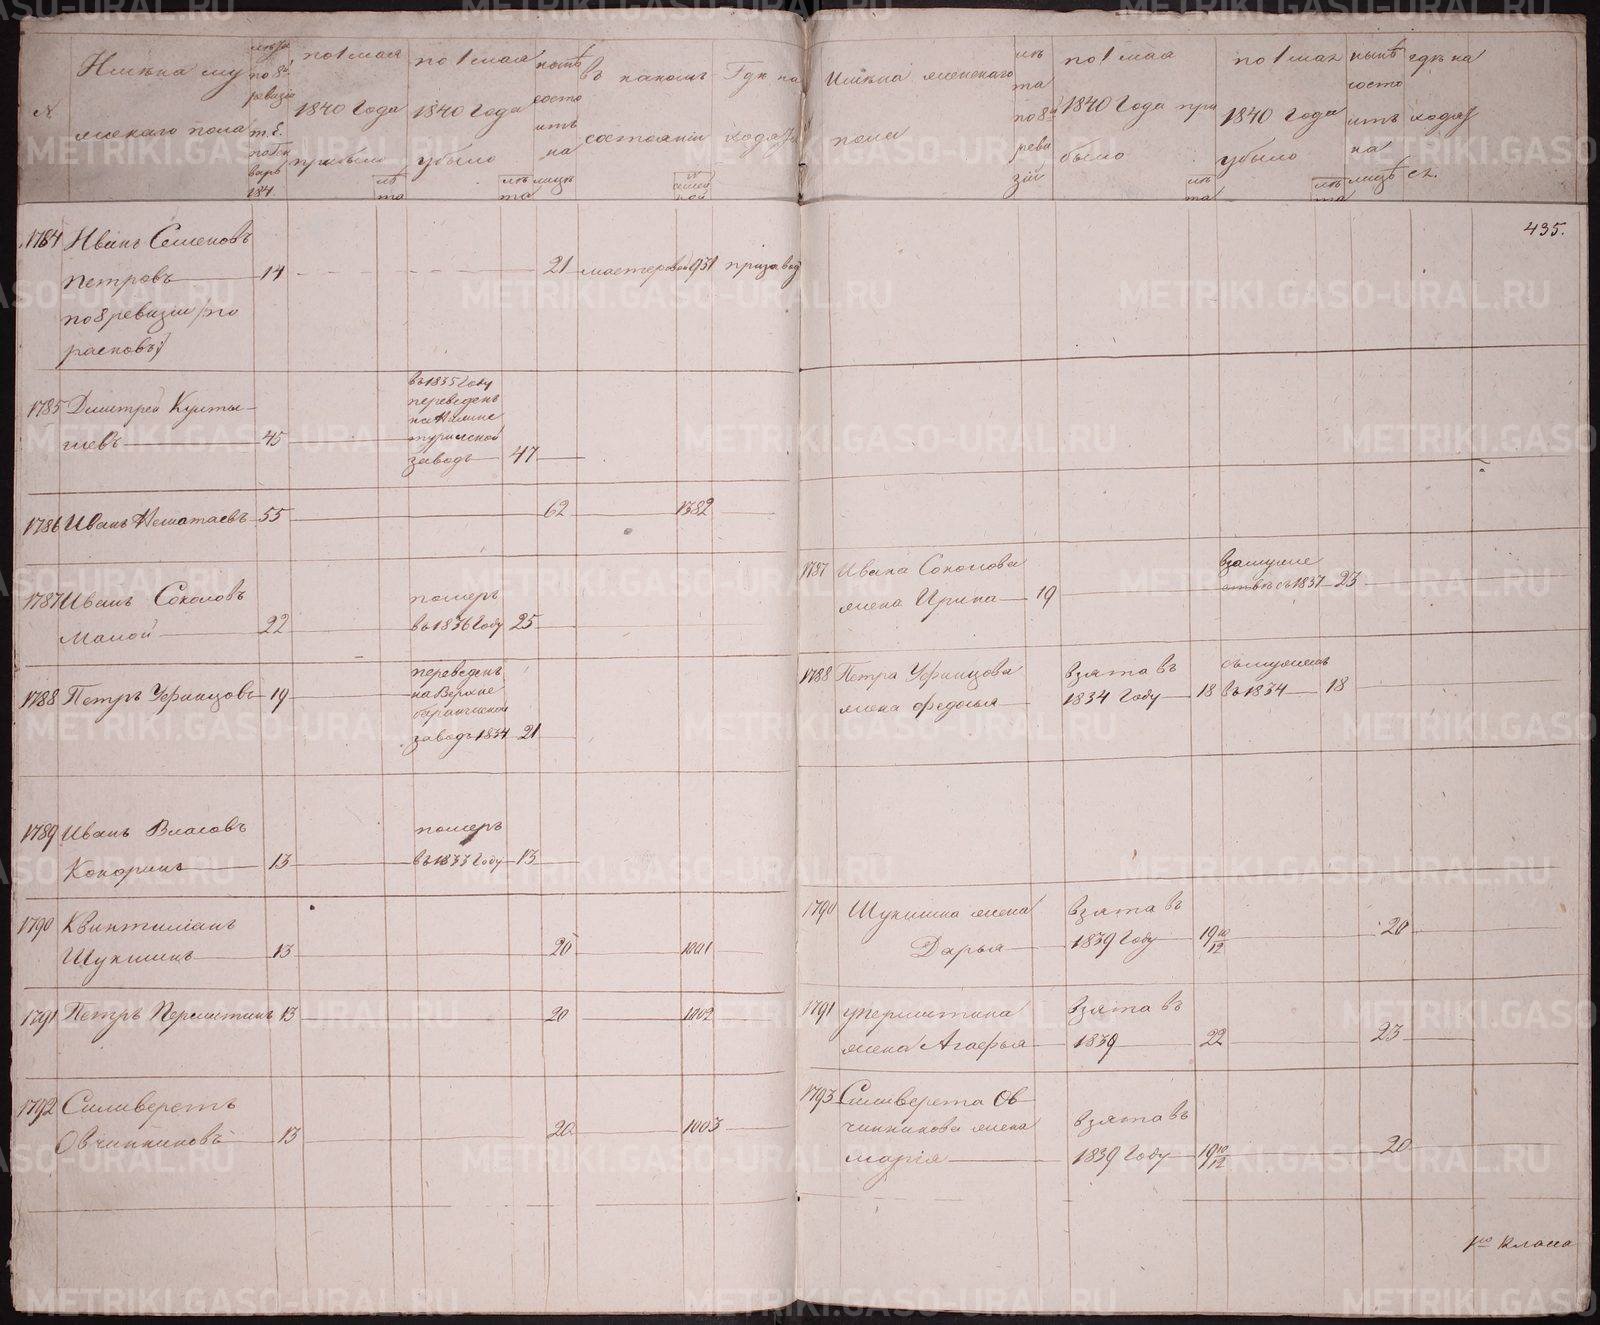 №
Имѣна му
жскаго пола
лѣта
по 8й
ревизіи
т. е.
по Ген
варь
184
по 1 мая
1840 года
прибыло
лѣ
та
по 1 мая
1840 года
убыло
лѣ
та
нынѣ
состо
итъ
на
лицѣ
въ какомъ
состояніи
Гдѣ на
ходят
Имѣна женскаго
пола
лѣ
та
по 8й
реви
зій
по 1 мая
1840 года при
было
лѣ
та
по 1 мая
1840 года
убыло
лѣ
та
нынѣ
состо
итъ
на
лицѣ
гдѣ на
ходят
ся.
435.
1784 Иванъ Семеновъ
Петровъ 14 21 мастеровой 931 при завод
по 8 ревизіи (по
расковъ)
1785 Дмитрей Култы-
шевъ 45
въ 1835 году
переведенъ
на Нижне
туринской
заводъ 47
1786 Иванъ Нешатаевъ 55 62 1382
1787 Иванъ Соколовъ
Малой 22
померъ
въ 1836 году 25
1787 Ивана Соколова
жена Ирина 19
взамуже
ствѣ съ 1837 23
1788 Петръ Уфинцовъ 19
переведенъ
на Верхне
баранчинской
заводъ 1834 21
1788 Петра Уфинцова
жена Федосья
взята въ
1834 году 18
съ мужемъ
въ 1834 18
1789 Иванъ Власовъ
Кокоринъ 13
померъ
въ 1833 году 13
1790 Квинтиліанъ
Шукшинъ 13 20 1001
1790 Шукшина жена
Дарья
взята въ
1839 году 19 10/12 20
1791 Петръ Першитинъ 13 20 1002
1791 уПершитина
жена Агафья
взята въ
1839 22 23
1792 Силиверстъ
Овчинниковъ 13 20 1003
1793 Силиверста Ов-
чинникова жена
Марія
взята въ
1839 году 19 10/12 20
1го класа
METRIKI.GASO-URAL.RU